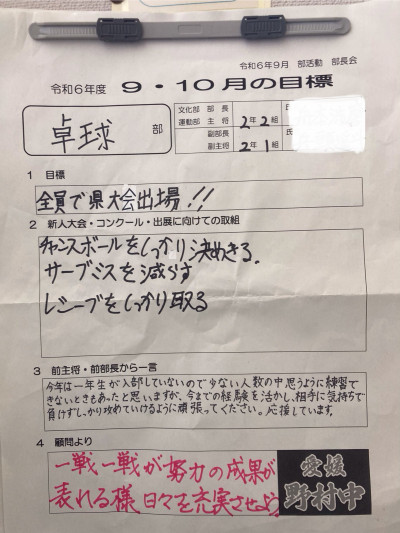 令和6年9月 部活動 部長会
令和6年度 9・10月の目標
卓球 部
文化部 部長
運動部 主将 2年2組
副部長
副主将 2年1組
1 目標
全員で県大会出場!!
2 新人大会・コンクール・出展に向けての取組
チャンスボールをしっかり決めきる.
サーブミスを減らす
レシーブをしっかり取る
3 前主将・前部長から一言
今年は一年生が入部していないので少ない人数の中思うように練習で
きないときもあったと思いますが、今までの経験を活かし、相手に気持ちで
負けずしっかり攻めていけるように頑張ってください。応援しています。
4 顧問より
一戦一戦が努力の成果が
表れる様 日々を充実させよう
愛媛
野村中